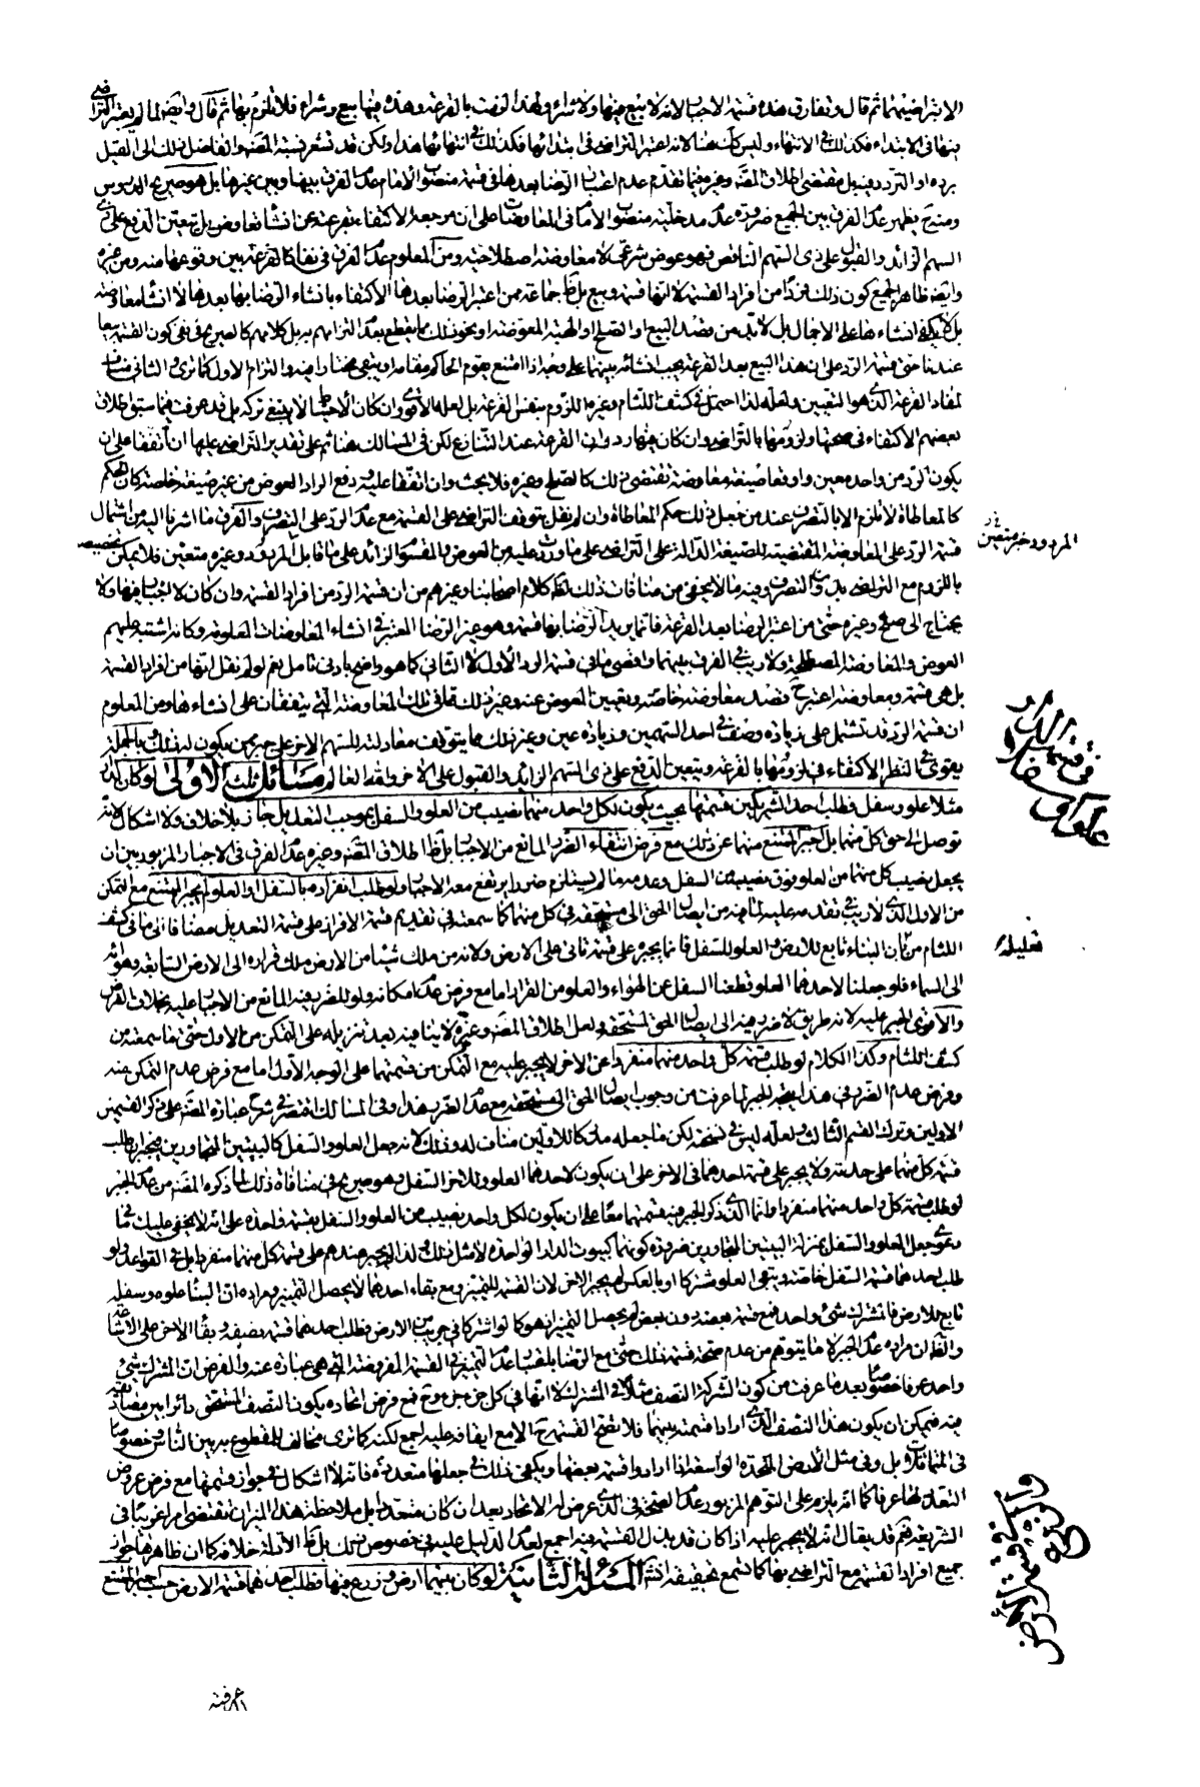 الا بتراضيهما ثم قال وتفارق هذه قسمة الاجبار لانه لا بيع فيها ولا شراء ولهذا لزمت بالقرعة وهذه فيها بيع وشراء فلا تلزم بها ثم قال وايضا لما لم يعتبر التراضي
بينهما في الابتداء فكذلك في الانتهاء وليس كك هنا لانه اعتبر التراضي في ابتدائها فكذلك في انتهائها هذا ولكن قد تشعر نسبة المصنف والفاضل ذلك الى القيل
برده او التردد فيه بل مقتضى اطلاق المصنف وغيره فيما تقدم عدم اعتبار الرضا بعدها في قسمة منصوب الامام عدم الفرق بينها وبين غيرها بل هو صريح الدروس
وحينئذ يظهر عدم الفرق بين الجميع ضرورة عدم مدخلية منصوب الامام في المعاوضات على ان مرجعه الاكتفاء بقرعته عن انشائه تعاوض بل يتعين الدفع على ذي
السهم الزائد والقبول على ذي السهم الناقص فهو عوض شرعي لا معاوضة اصطلاحية ومن المعلوم عدم الفرق في مفاد القرعة بين وقوعها منه ومن غيره
وايضا ظاهر الجميع كون ذلك فردا من افراد القسمة لا انها قسمة وبيع بل ظ جماعة ممن اعتبر الرضا بعدها الاكتفاء بانشاء الرضا بها بعدها لا انشاء معاوضة
بل لا يكفي انشاءها على الاجمال بل لا بد من قصد البيع او الصلح او الهبة المعوضة او نحو ذلك مما يقطع بعدم التزامهم به بل كلامهم كالصريح في نفي كون القسمة بيعا
عندنا حتى قسمة الرد على ان هذا البيع بعد القرعة يجب انشائه بينهما على وجه اذا امتنع يقوم الحاكم مقامه او يبقى مختارا فيه والتزام الاول كما ترى والثاني مناف
لمفاد القرعة الذي هو التعيين ولعله لذا احتمل في كشف اللثام وغيره اللزوم بنفس القرعة بل لعله الاقوى وان كان الاحتياط لا ينبغي تركه بل قد عرفت فيما سبق اطلاق
بعضهم الاكتفاء في صحتها ولزومها بالتراضي وان كان فيها رد وان القرعة عند التنازع لكن في المسالك هنا ثم على تقدير التراضي عليها ان اتفقا على ان
يكون الرد من واحد معين واوقعا صيغة معاوضة تقتضي ذلك كالصلح وغيره فلا بحث وان اتفقا عليه ودفع الراد العوض من غير صيغة خاصة كان الحكم
كالمعاطاة لا تلزم الا بالتصرف عند من جعل ذلك حكم المعاطاة وان لم نقل بتوقف التراضي على القسمة مع عدم الرد على التصرف والفرق ما اشرنا اليه من اشتمال
قسمة الرد على المعاوضة المقتضية للصيغة الدالة على التراضي على ما وقعت عليه من العوض بالقسم الزائد على ما قابل المردود وغيره متعين فلا يمكن تخصيصه
المردود غير متعين
باللزوم مع التراضي بدون التصرف وفيه ما لا يخفى من منافاة ذلك لظ كلام اصحابنا وغيرهم من ان قسمة الرد من افراد القسمة وان كان لا اجبار فيها ولا
يحتاج الى صلح وغيره حتى من اعتبر الرضا بعد القرعة فانما يريد الرضا بها قسمة وهو غير الرضا المعتبر في انشاء المعاوضات المعلومة وكانه اشتبه عليهم
العوض والمعاوضة المصطلحة ولا ريب في الفرق بينهما واقصى ما في قسمة الرد الاول لا الثاني كما هو واضح بادنى تامل نعم لو لم نقل انها من افراد القسمة
بل هي قسمة ومعاوضة اعتبر ح قصد معاوضة خاصة وتعيين المعوض عنه وغير ذلك مما في تلك المعاوضة التي يتفقان على انشاءها ومن المعلوم
ان قسمة الرد قد تشتمل على زيادة وصف في احد السهمين وزيادة عين وغير ذلك مما يتوقف معادلته للسهم الاخر على جبر من يكون له ذلك وبالجملة
يقوى في النظر الاكتفاء في لزومها بالقرعة ويتعين الدفع على ذي السهم الزائد والقبول على الاخر والله العالم مسائل ثلث الاولى لو كان لدار
في قسمة الدار علو او سفل
مثلا علو وسفل فطلب احد الشريكين قسمتها بحيث يكون لكل واحد منهما نصيب من العلو والسفل بموجب التعديل جاز بلا خلاف ولا اشكال لانه
توصل الى حق كل منهما بل اجبر الممتنع منهما عن ذلك مع فرض انتفاء الضرر المانع من الاجبار بل ظ اطلاق المصنف وغيره عدم الفرق في الاجبار المزبور بين ان
يجعل نصيب كل منهما من العلو فوق نصيبه من السفل وعدمه ما لم يستلزم ضررا يرتفع معه الاجبار ولو طلب انفراده بالسفل او العلو لم يجبر الممتنع مع التمكن
من الاول الذي لا ريب في تقدمه عليه لما فيه من ايصال الحق الى مستحقه في كل منهما كما سمعته في تقديم قسمة الافراز على قسمة التعديل مضافا الى ما في كشف
اللثام من ان البناء تابع للارض والعلو للسفل فانما يجبر على قسمة تاتي على الارض ولانه من ملك شيئا من الارض ملك قراره الى الارض السابعة وهوائه
تعليله
الى السماء فلو جعلنا لاحدهما العلو قطعنا السفل عن الهواء والعلو من القرار اما مع فرض عدم امكانه ولو للضرر فيه المانع من الاجبار عليه بخلاف الفرض
والاقوى الجبر عليه لانه طريق لا ضرر فيه الى ايصال الحق لمستحقه ولعل اطلاق المصنف وغيره لا ينافيه بعد تنزيله على التمكن من الاول حتى ما سمعته من
كشف اللثام وكذا الكلام لو طلب قسمة كل واحد منهما منفردا عن الاخر لا يجبر عليه مع التمكن من قسمتهما على الوجه الاول اما مع فرض عدم التمكن منه
وفرض عدم الضرر في هذا يتجه الجبر لما عرفت من وجوب ايصال الحق الى مستحقه مع عدم الضرر هذا وفي المسالك اقتصر في شرح عبارة المصنف على ذكر القسمين
الاولين وترك القسم الثالث ولعله ليس في نسخته لكن ما جعله مدركا للاولين مناف له وذلك لانه جعل العلو والسفل كالبيتين المتجاورين فيجبر لها طلب
قسمة كل منهما على حدته ولا يجبر على قسمة احدهما في الاخر على ان يكون لاحدهما العلو وللاخر السفل وهو صريح في منافاة ذلك لما ذكره المصنف من عدم الجبر
لو طلب قسمة كل واحد منهما منفردا وانما الذي ذكر الجبر فيه قسمتهما معا على ان يكون لكل واحد نصيب من العلو والسفل بقسمة واحدة على انه لا يخفى عليك ما في
دعوى جعل العلو والسفل بمنزلة البيتين المتجاورين ضرورة كونهما كبيوت الدار الواحدة لا مثل ذلك ولذا لم يجبر عندهم على قسمة كل منهما منفردا بل في القواعد ولو
طلب احدهما قسمة السفل خاصة ويبقى العلو مشتركا او بالعكس لم يجبر الاخر لان القسمة للتمييز ومع بقاء احدهما لا يحصل التمييز ومراده ان البناء علوه وسفله
تابع للارض فالمشترك شيء واحد فمع قسمة بعضه دون بعض لم يحصل التمييز فهو كما لو اشتركا في جريب من الارض فطلب احدهما قسمة نصفه وبقاء الاخر على الاشاعة
والظ ان مراده عدم الجبر لا ما يتوهم من عدم صحة قسمة ذلك حتى مع الرضا باعتبار عدم التمييز في القسمة المفروضة التي هي عبارة عنه والفرض ان المشترك شيء
واحد عرفا خصوصا بعد ما عرفت من كون الشركة في النصف مثلا في المشترك لا انها في كل جزء جزء وح فمع فرض اتحاده يكون النصف المستحق دائرا بين مصاديقه
فيه فيمكن ان يكون هذا النصف الذي ارادا قسمته بينهما فلا تصح القسمة ح الا مع ايقاعه عليه اجمع لكنه كما ترى مخالف للمقطوع به بين الناس وخصوصا
في المتماثلات بل وفي مثل الارض المتحدة الواسعة اذا ارادوا قسمة بعضها ويكفي ذلك في جعلها متعددة فانه لا اشكال في جواز قسمتها مع فرض عرض
التعدد لها عرفا كما انه يلزم على التوهم المزبور عدم الصحة في الذي عرض له الاتحاد بعد ان كان متعددا بل ملاحظة هذا الميزان تقتضي امرا غريبا في
الشريعة نعم قد يقال انه لا يجبر عليه اذا كان قد بذل القسمة فيه اجمع لعدم الدليل عليه في خصوص ذلك بل ظ الادلة خلافه كما ان ظاهرها جواز
جميع افراد القسمة مع التراضي بها كما تسمع تحقيقه انشاء الله المسئلة الثانية لو كان بينهما ارض وزرع فيها فطلب احدهما قسمة الارض حسب اجبر الممتنع